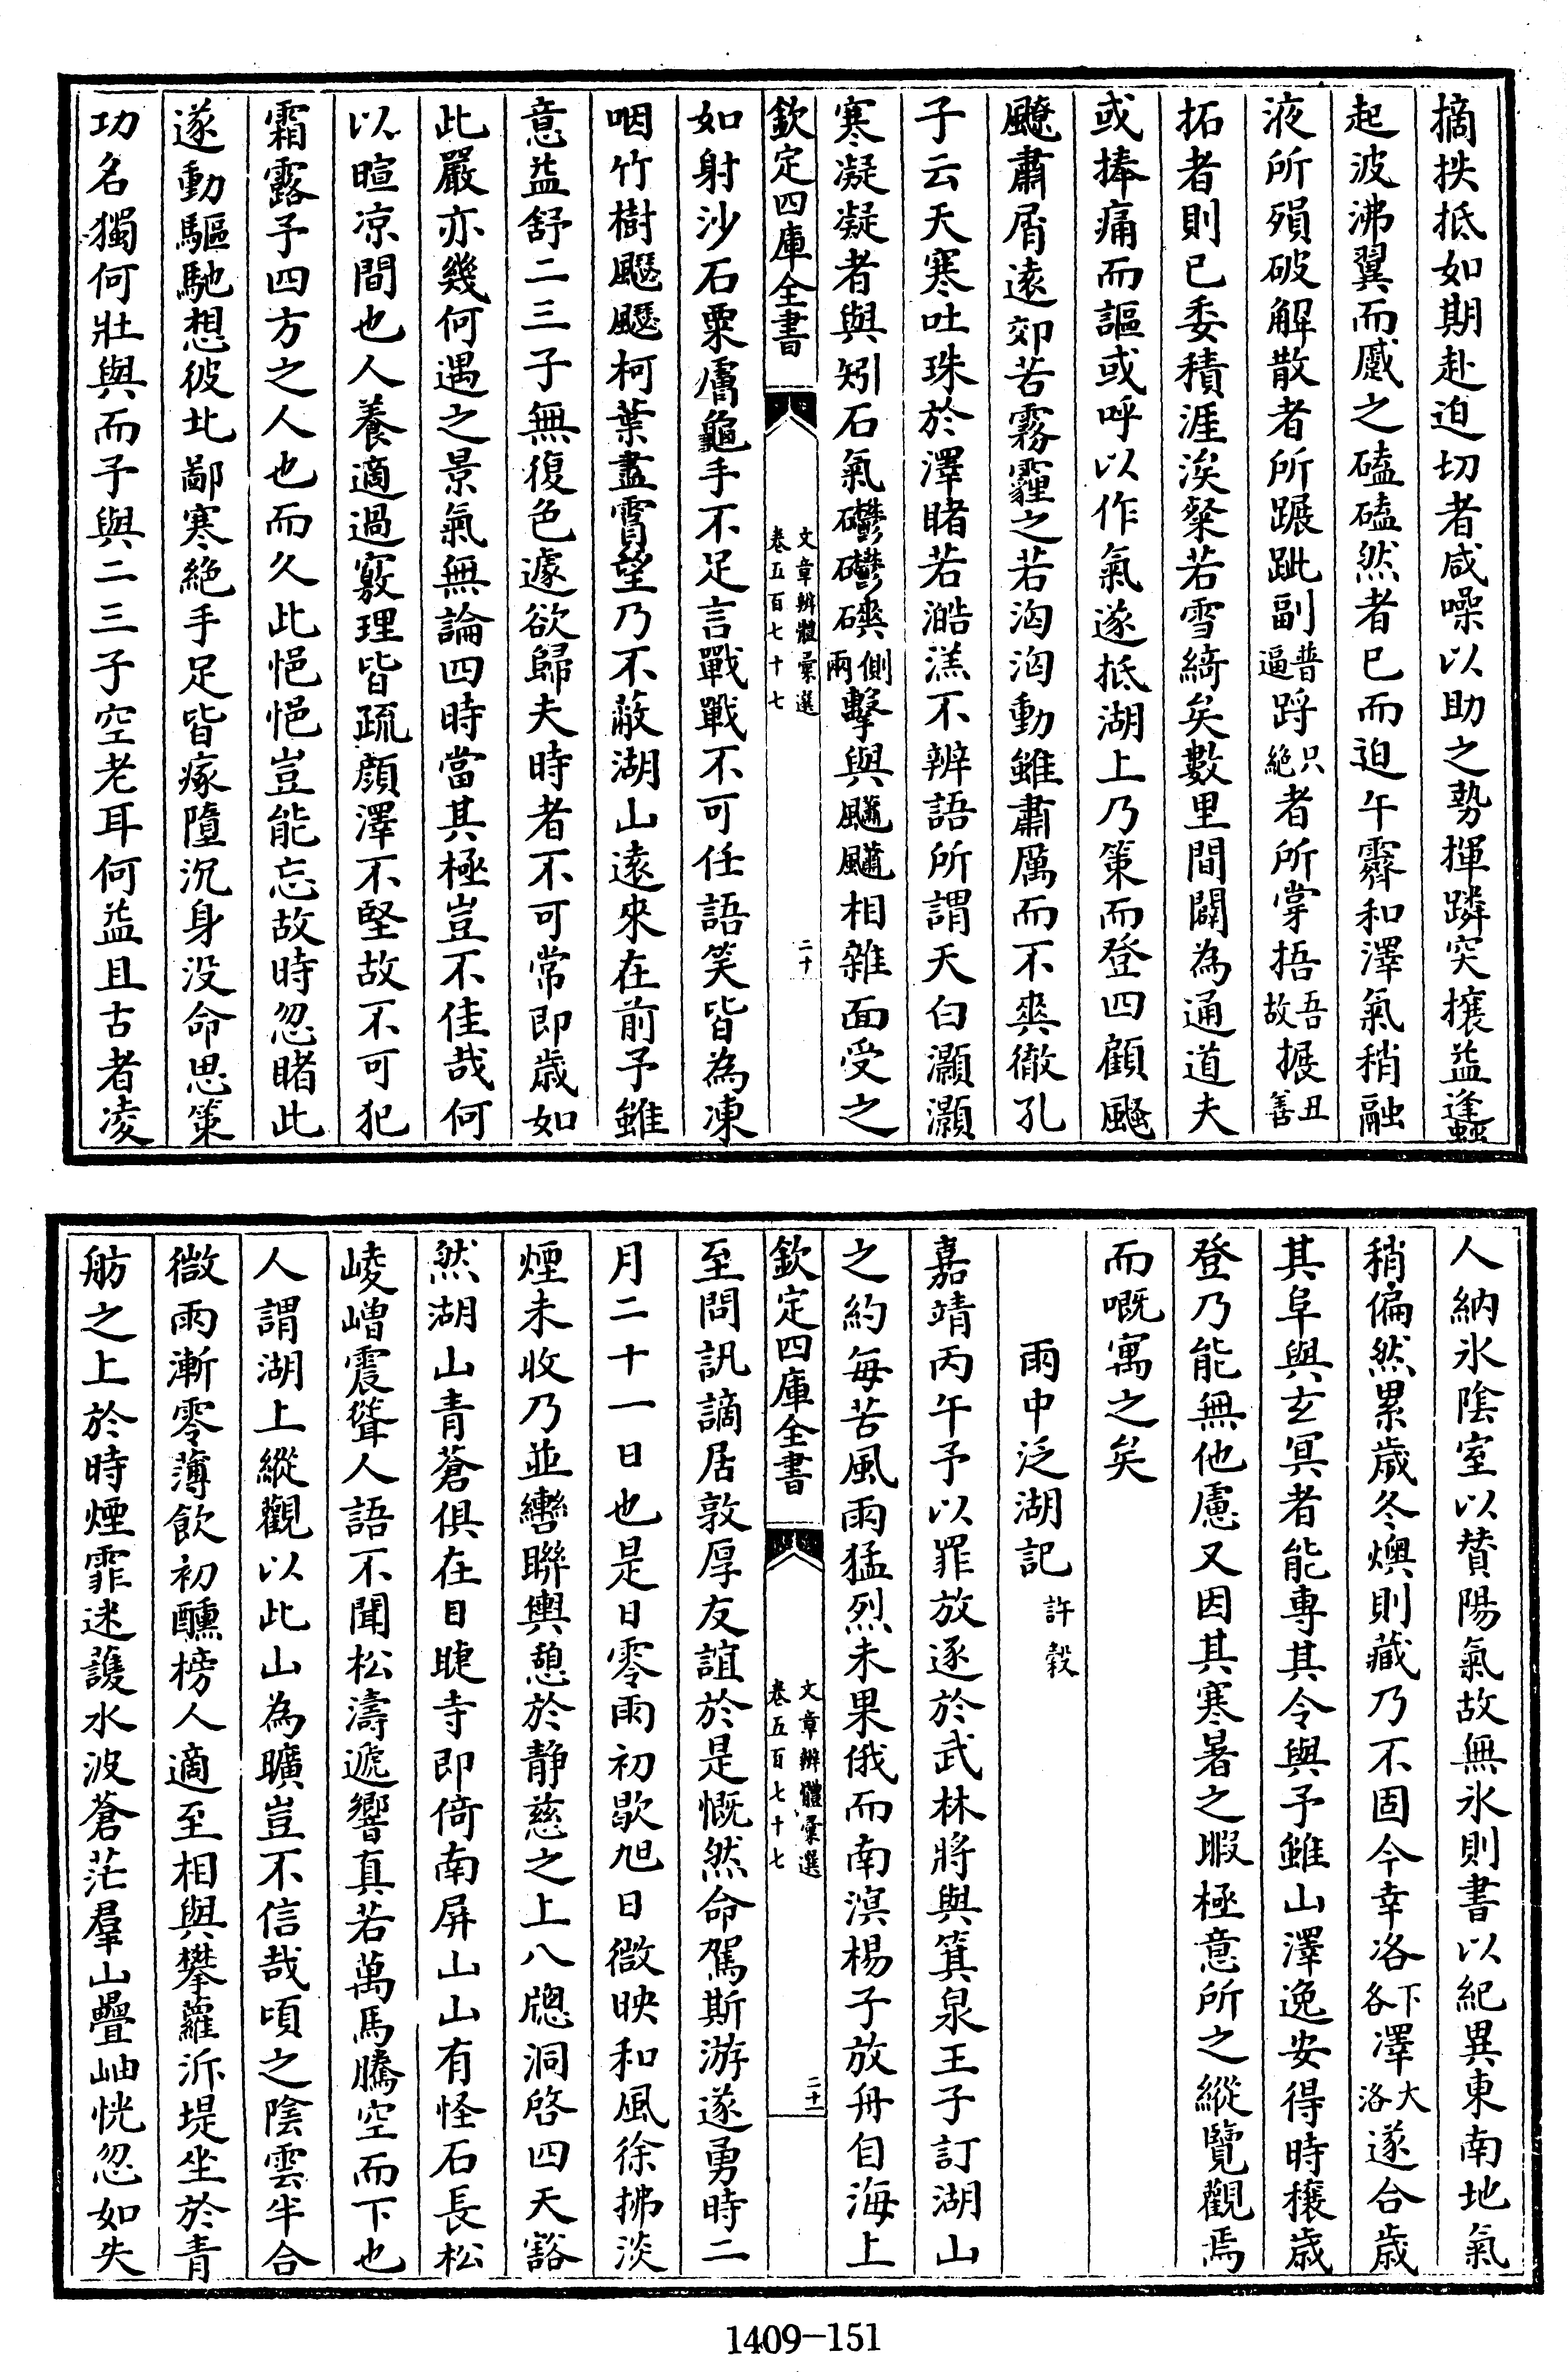 摘抶抵如期赴迫切者咸噪以助之勢揮蹸突攘益逢䖝
起波沸翼而戚之磕磕然者已而迫午霽和澤氣稍融
液所殞破解散者所蹍跐副普逼踭只絶者所掌捂吾故搌丑善
拓者則已委積涯涘粲若雪綺矣數里間闢為通道夫
或捧痛而謳或呼以作氣遂抵湖上乃策而登四顧颾
飉肅屑遠郊若霧霾之若洶洶動雖肅厲而不爽徹孔
子云天寒吐珠於澤睹若澔溔不辨語所謂天白灝灝
寒凝凝者與矧石氣礬礬磢側兩擊與飈飈相雜面受之
欽定四庫全書
文章辨體彙選
卷五百七十七
二十
如射沙石粟膚龜手不足言戰戰不可任語笑皆為凍
咽竹樹飋飋柯葉盡霣望乃不蔽湖山遠來在前予雖
意益舒二三子無復色遽欲歸夫時者不可常即歳如
此嚴亦幾何遇之景氣無論四時當其極豈不佳哉何
以暄凉間也人養適過竅理皆疏顔澤不堅故不可犯
霜露予四方之人也而久此悒悒豈能忘故時忽睹此
遂動驅馳想彼北鄙寒絶手足皆瘃墮沉身没命思策
功名獨何壯與而予與二三子空老耳何益且古者凌
人納氷陰室以賛陽氣故無氷則書以紀異東南地氣
稍偏然累歳冬燠則藏乃不固今幸洛下各澤大洛遂合歳
其阜與玄冥者能專其令與予雖山澤逸安得時穰歳
登乃能無他慮又因其寒暑之暇極意所之縱覽觀焉
而嘅寓之矣
雨中泛湖記許穀
嘉靖丙午予以罪放逐於武林將與箕泉王子訂湖山
之約每苦風雨猛烈未果俄而南溟楊子放舟自海上
欽定四庫全書
文章辨體彙選
卷五百七十七
二十一
至問訊謫居敦厚友誼於是慨然命駕斯游遂勇時二
月二十一日也是日零雨初歇旭日微映和風徐拂淡
煙未收乃並轡聯輿憩於静慈之上八牕洞啓四天豁
然湖山青蒼俱在目睫寺即倚南屏山山有怪石長松
崚嶒震聳人語不聞松濤遞響真若萬馬騰空而下也
人謂湖上縱觀以此山為曠豈不信哉頃之陰雲半合
微雨漸零薄飲初醺榜人適至相與攀蘿泝堤坐於青
舫之上於時煙霏迷護水波蒼茫羣山疊岫恍忽如失
1409—151